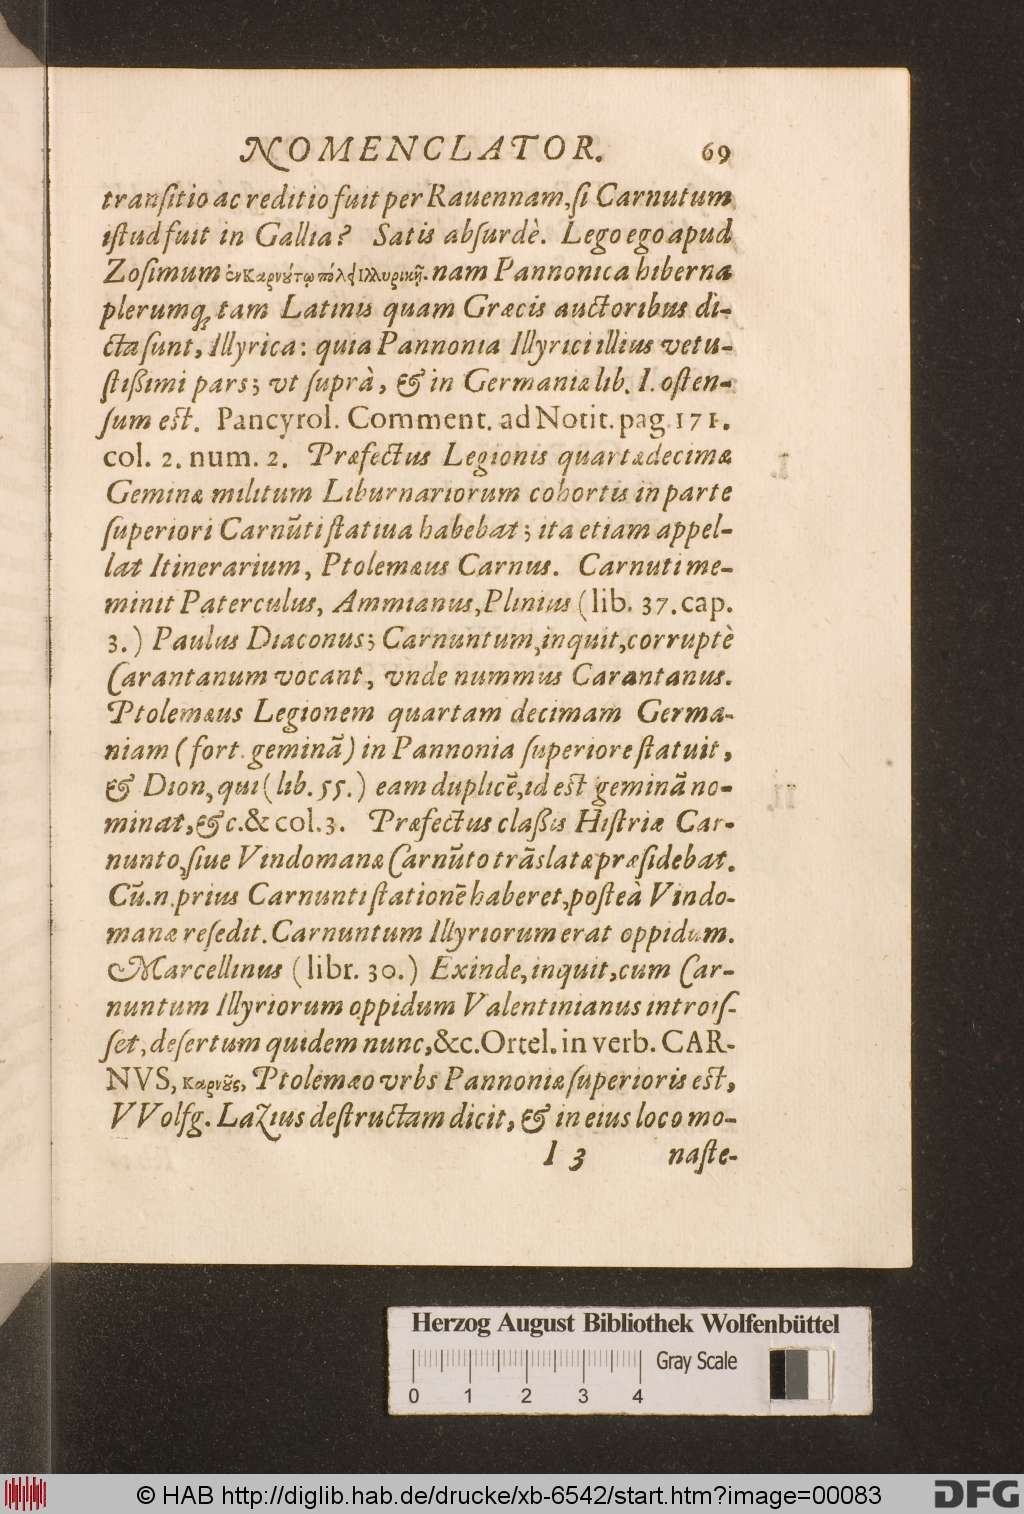 NOMENCLATOR. 69
tranſitio ac reditio fuit per Rauennam, ſi Carnutum
iſtud fuit in Gallia? Satis abſurdè. Lego ego apud
Zoſimum ἐν Καρνούτῳ πόλει Ιλλυρικῇ. nam Pannonica hiberna
plerumq; tam Latinis quam Græcis auctoribus di-
cta ſunt, Illyrica: quia Pannonia Illyrici illius vetu-
ſtißimi pars; vt ſuprà, & in Germania lib. 1. oſten-
ſum eſt. Pancyrol. Comment. ad Notit. pag. 171.
col. 2. num. 2. Præfectus Legionis quartædecimæ
Geminæ militum Liburnariorum cohortis in parte
ſuperiori Carnūti ſtatiua habebat; ita etiam appel-
lat Itinerarium, Ptolemæus Carnus. Carnuti me-
minit Paterculus, Ammianus, Plinius (lib. 37. cap.
3.) Paulus Diaconus; Carnuntum, inquit, corruptè
Carantanum vocant, vnde nummus Carantanus.
Ptolemæus Legionem quartam decimam Germa-
niam (fort. geminā) in Pannonia ſuperiore ſtatuit,
& Dion, qui (lib. 55.) eam duplicē, id eſt geminā no-
minat, &c. & col. 3. Præfectus claßis Hiſtriæ Car-
nunto, ſiue Vindomanæ Carnūto trāslatæ præſidebat.
Cū.n. prius Carnunti ſtationē haberet, poſteà Vindo-
manæ reſedit. Carnuntum Illyriorum erat oppidum.
Marcellinus (libr. 30.) Exinde, inquit, cum Car-
nuntum Illyriorum oppidum Valentinianus introiſ-
ſet, deſertum quidem nunc, &c. Ortel. in verb. CAR-
NVS, καρνοῦς, Ptolemæo vrbs Pannoniæ ſuperioris eſt,
VVolfg. Lazius deſtructam dicit, & in eius loco mo-
I 3 naſte-
Herzog August Bibliothek Wolfenbüttel
Gray Scale
0 1 2 3 4
© HAB http://diglib.hab.de/drucke/xb-6542/start.htm?image=00083
DFG